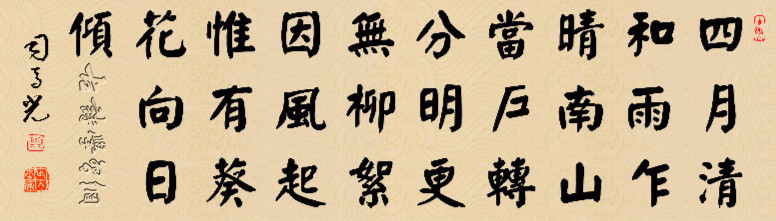 四月清
和雨乍
晴南山
當戶轉
分明更
無柳絮
因風起
惟有葵
花向日
傾
司馬光